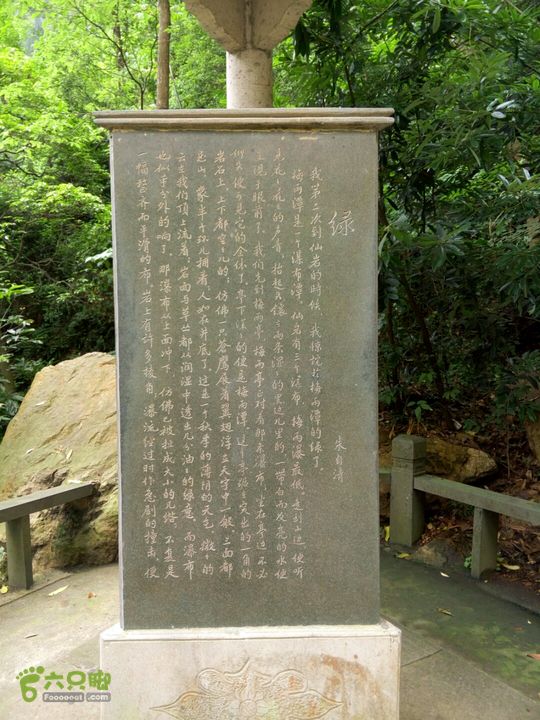 绿
朱自清
我第二次到仙岩的时候，我惊诧于梅雨潭的绿了。
梅雨潭是一个瀑布潭。仙岩有三个瀑布，梅雨瀑最低。走到山边，便听
见花々花々的声音；抬起头，镶在两条湿々的黑边儿里的，一带白而发亮的水便
呈现于眼前了。我们先到梅雨亭。梅雨亭正对着那条瀑布；坐在亭边，不必
仰头，便可见它的全体了。亭下深々的便是梅雨潭。这个亭踞在突出的一角的
岩石上，上下都空々儿的；仿佛一只苍鹰展着翼翅浮在天宇中一般。三面都
是山，象半个环儿拥着；人如在井底了。这是一个秋季的薄阴的天气。微々的
云在我们顶上流着；岩面与草丛都从润湿中透出几分油々的绿意。而瀑布
也似乎分外的响了。那瀑布从上面冲下，仿佛已被扯成大小的几绺；不复是
一幅整齐而平滑的布。岩上有许多棱角；瀑流经过时，作急剧的撞击，便
六只脚
Foooooot.com